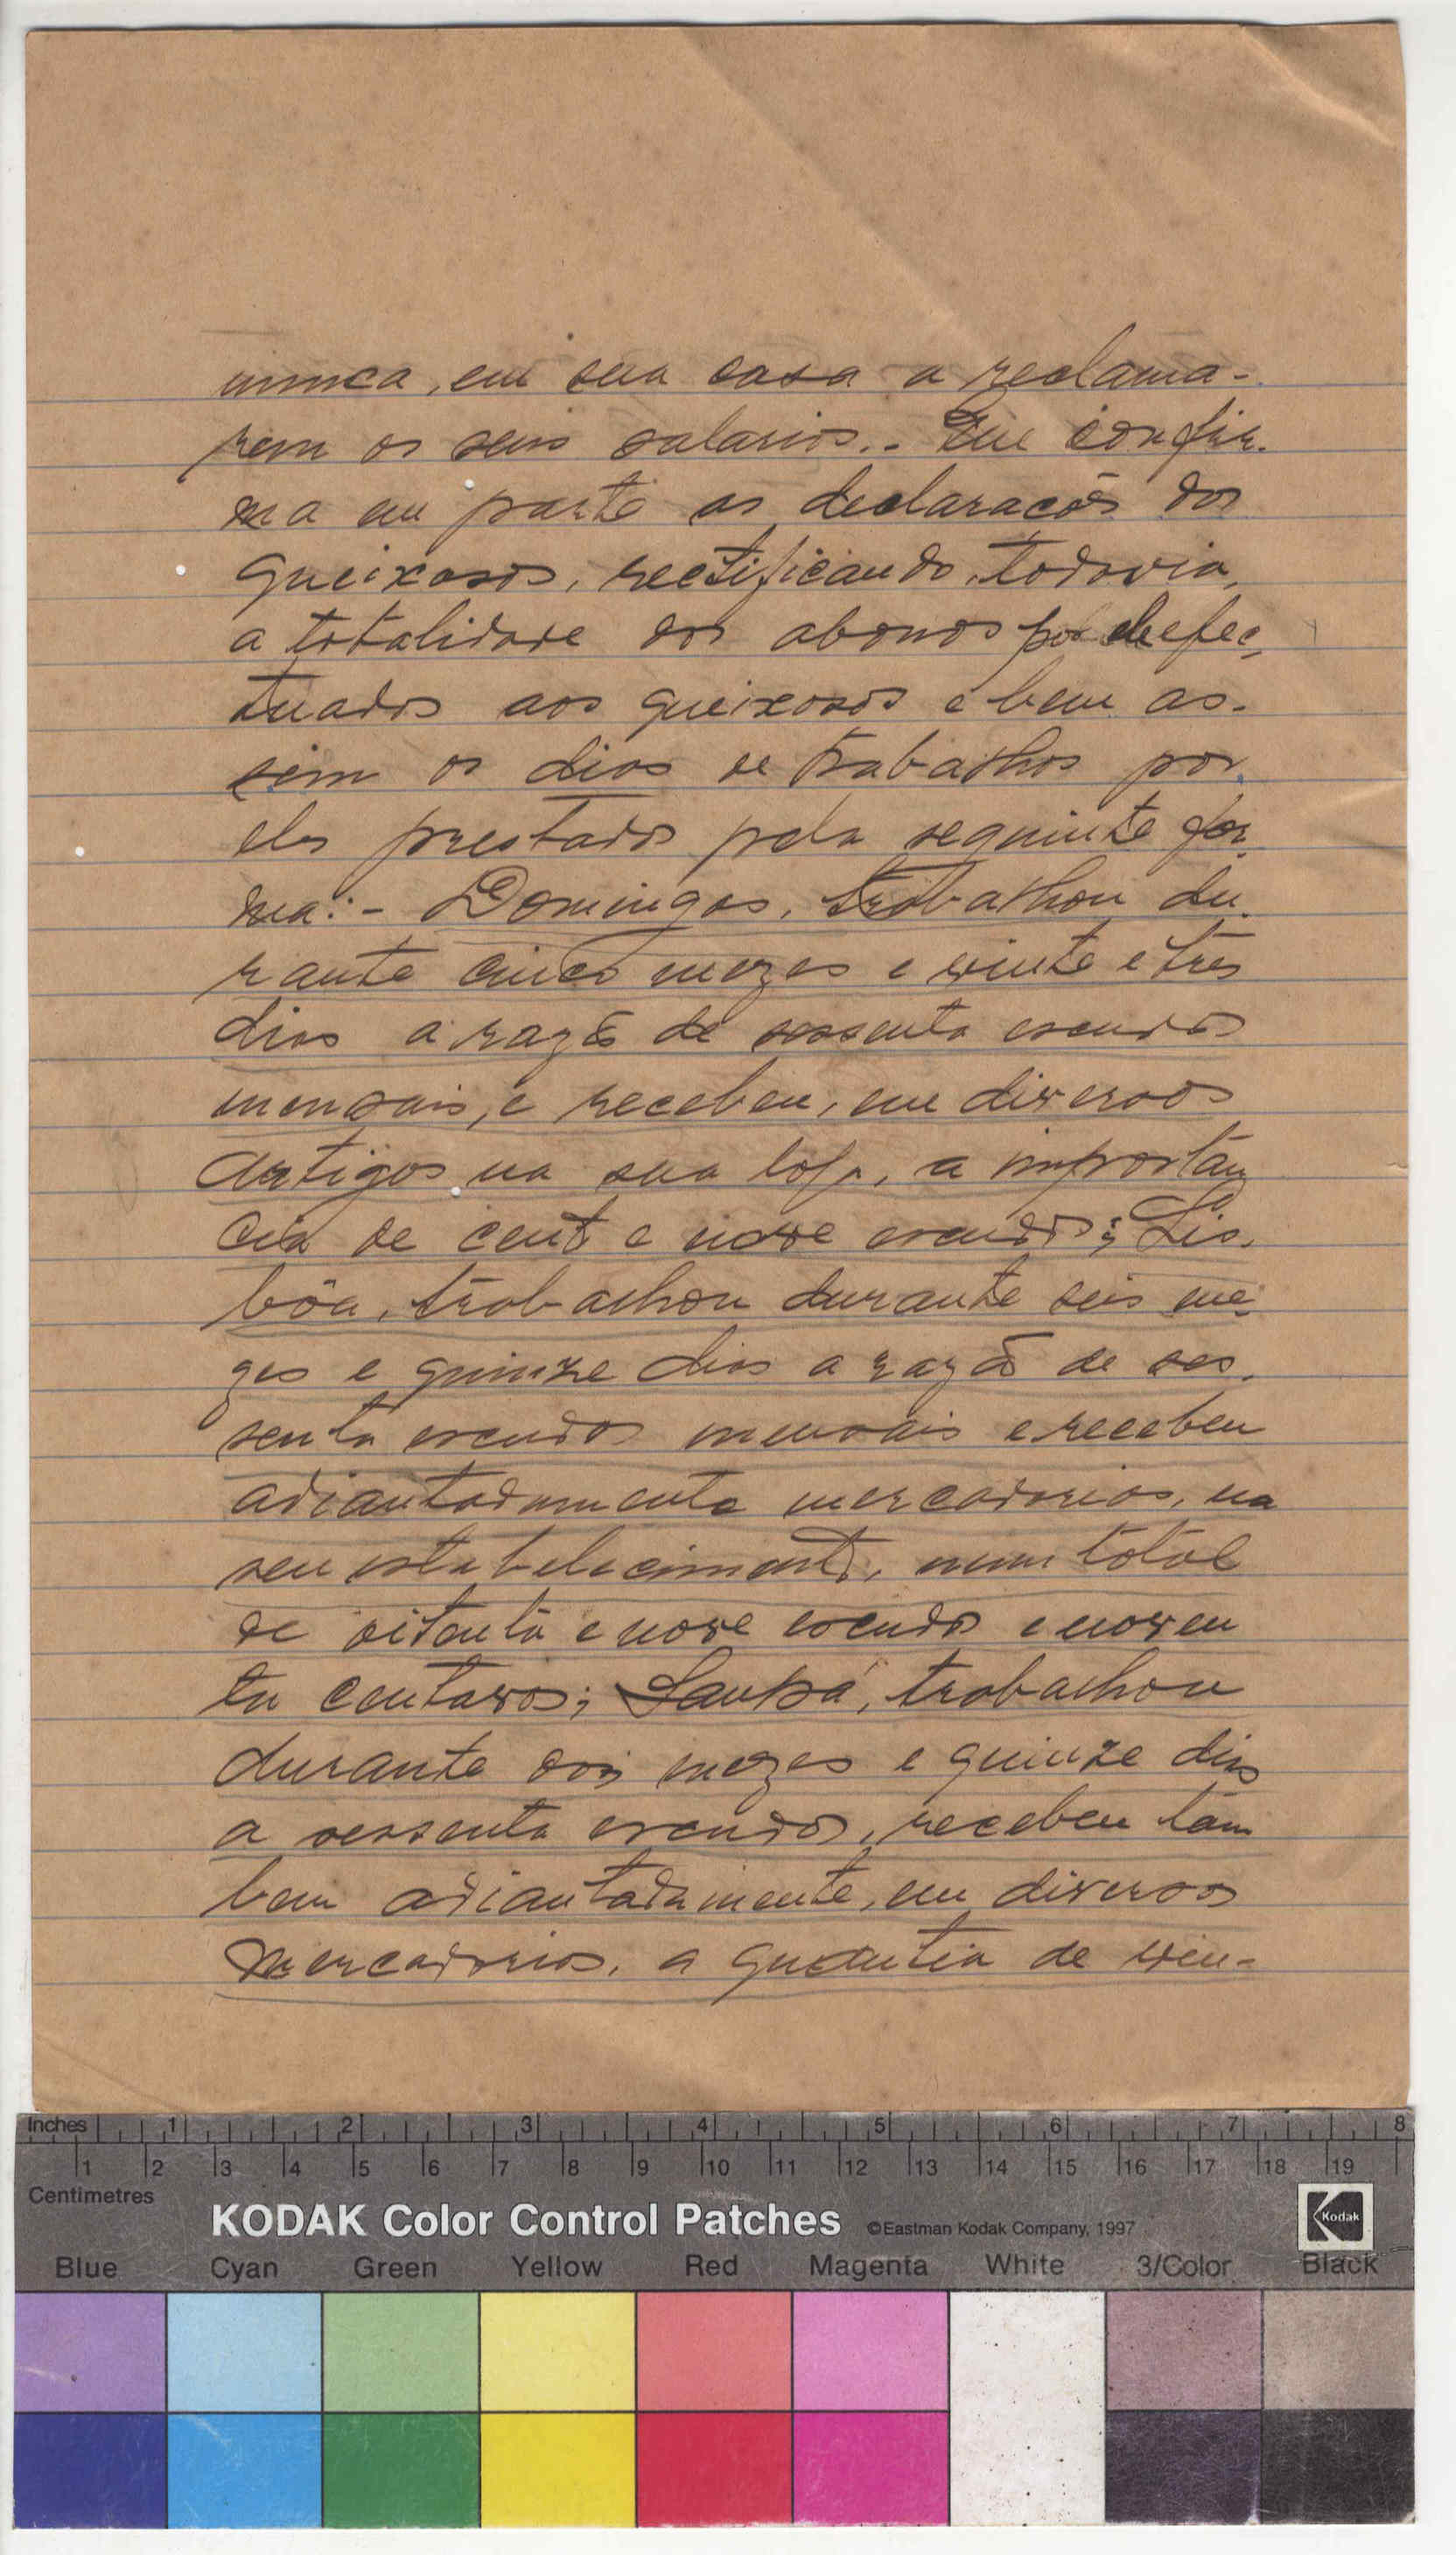 nunca, em sua casa a reclama-
rem os seus salarios.- Que confir-
ma em parte as declaracões dos
queixosos, rectificando, todavia,
a totalidade dos abonos por ele efec-
tuados aos queixosos e bem as-
sim os dias de trabalhos por
eles prestados pela seguinte for-
ma:- Domingos, trabalhou du-
rante cinco mezes e vinte e tres
dias a razão de sessenta escudos
mensais, e recebeu, em diversos
artigos na sua loja, a importan
cia de cento e nove escudos; Lis-
bôa, trabalhou durante seis me-
zes e quinze dias a razão de ses-
senta escudos mensais e recebeu
adiantadamente mercadorias, na
seu estabelecimento, num total
de oitenta e nove escudos e noven
ta centavos; Sanhá, trabalhou
durante dois mezes e quinze dias
a sessenta escudos, recebeu tam
bem adiantadamente, em diversos
mercadorias, a quantia de vin-
Inches 1 2 3 4 5 6 7 8
1 2 3 4 5 6 7 8 9 10 11 12 13 14 15 16 17 18 19
Centimetres
KODAK Color Control Patches ©Eastman Kodak Company, 1997 Kodak
Blue Cyan Green Yellow Red Magenta White 3/Color Black